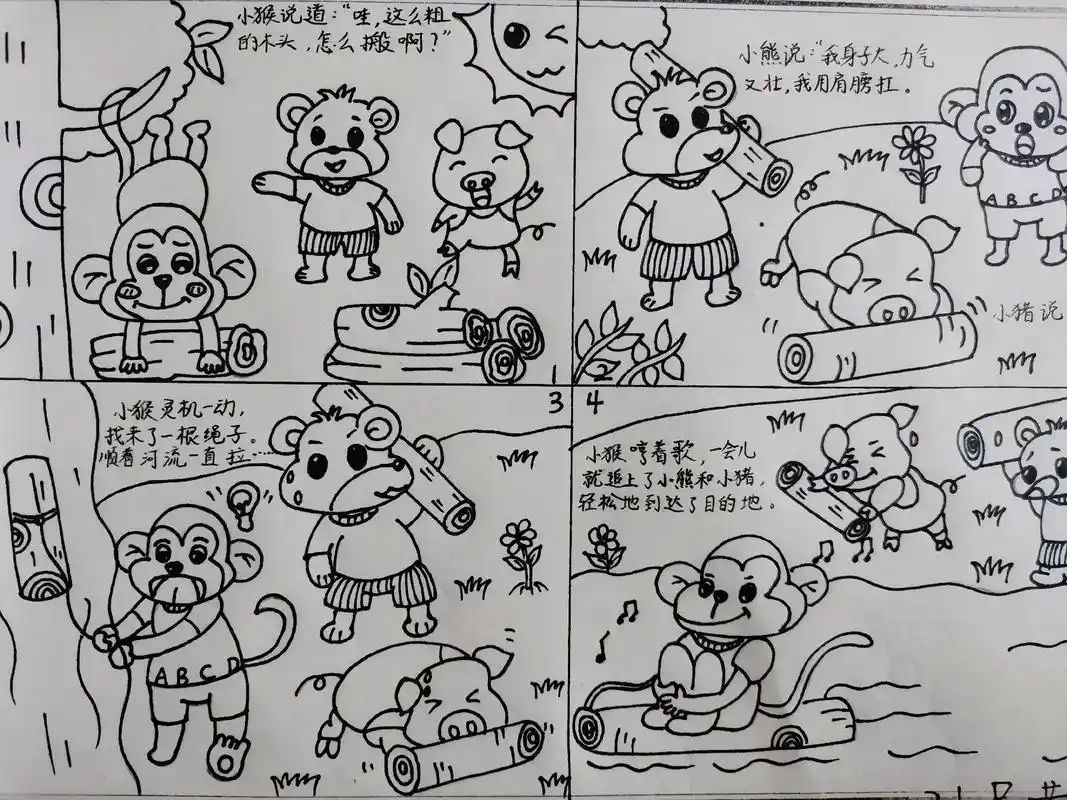 小猴说道：“哇，这么粗
的木头，怎么搬啊？”
1
小熊说：“我身子大，力气
又壮，我用肩膀扛。
ABCD
小猪说
2
小猴灵机一动，
找来了一根绳子。
顺着河流一直拉……
3
ABCD
4
小猴哼着歌，一会儿
就追上了小熊和小猪，
轻松地到达了目的地。